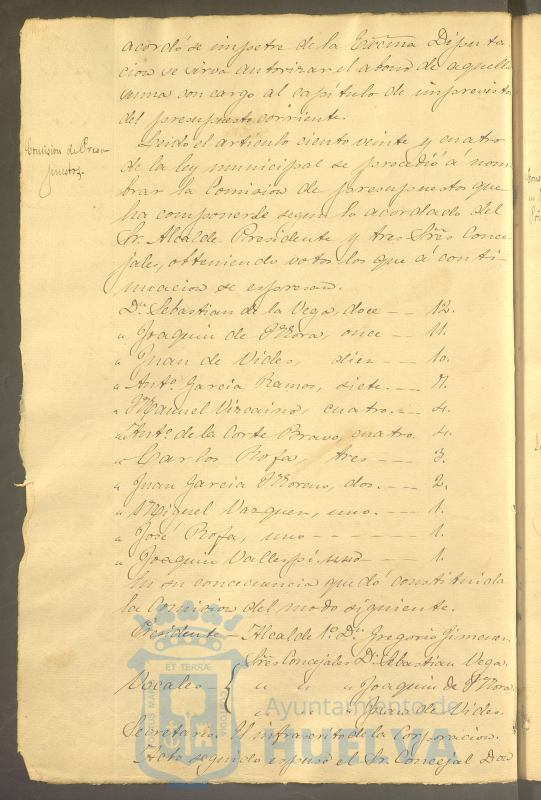 acordó se impetre de la Excma Diputa-
cion se sirva autorizar el abono de aquella
suma con cargo al capitulo de imprevistos
del presupuesto corriente.
Comision de Presu-
puestos.
Leido el articulo ciento veinte y cuatro
de la ley municipal se procedió á nom-
brar la Comision de presupuestos que
ha componerse segun lo acordado del
Sr. Alcalde Presidente y tres Sres Conce-
jales, obteniendo votos los que á conti-
nuacion se espresan.
Dn. Sebastian de la Vega, doce -- 12.
" Joaquin de Mora, once -- 11.
" Juan de Vides, diez -- 10.
" Anto. Garcia Ramos, siete. -- 7.
" Manuel Vizcaino, cuatro. -- 4.
" Anto. de la Corte Bravo, cuatro. 4.
" Carlos Rofa, tres -- 3.
" Juan Garcia Moreno, dos. -- 2.
" Miguel Vazquez, uno. -- 1.
" José Rofa, uno ---- 1.
" Joaquin Vallespi, uno -- 1.
En su concecuancia quedó constituida
la Comision del modo siguiente.
Presidente - Alcalde 1o. Dn. Gregorio Jimenez.
Sres Concejales Dn. Sebastian Vega.
Vocales - { " " " Joaquin de Mora.
" " Juan de Vides.
Secretario. El infrascrito de la Corporacion.
Acto seguido espuso el Sr. Concejal Don
Ayuntamiento de
HUELVA
ET TERRÆ